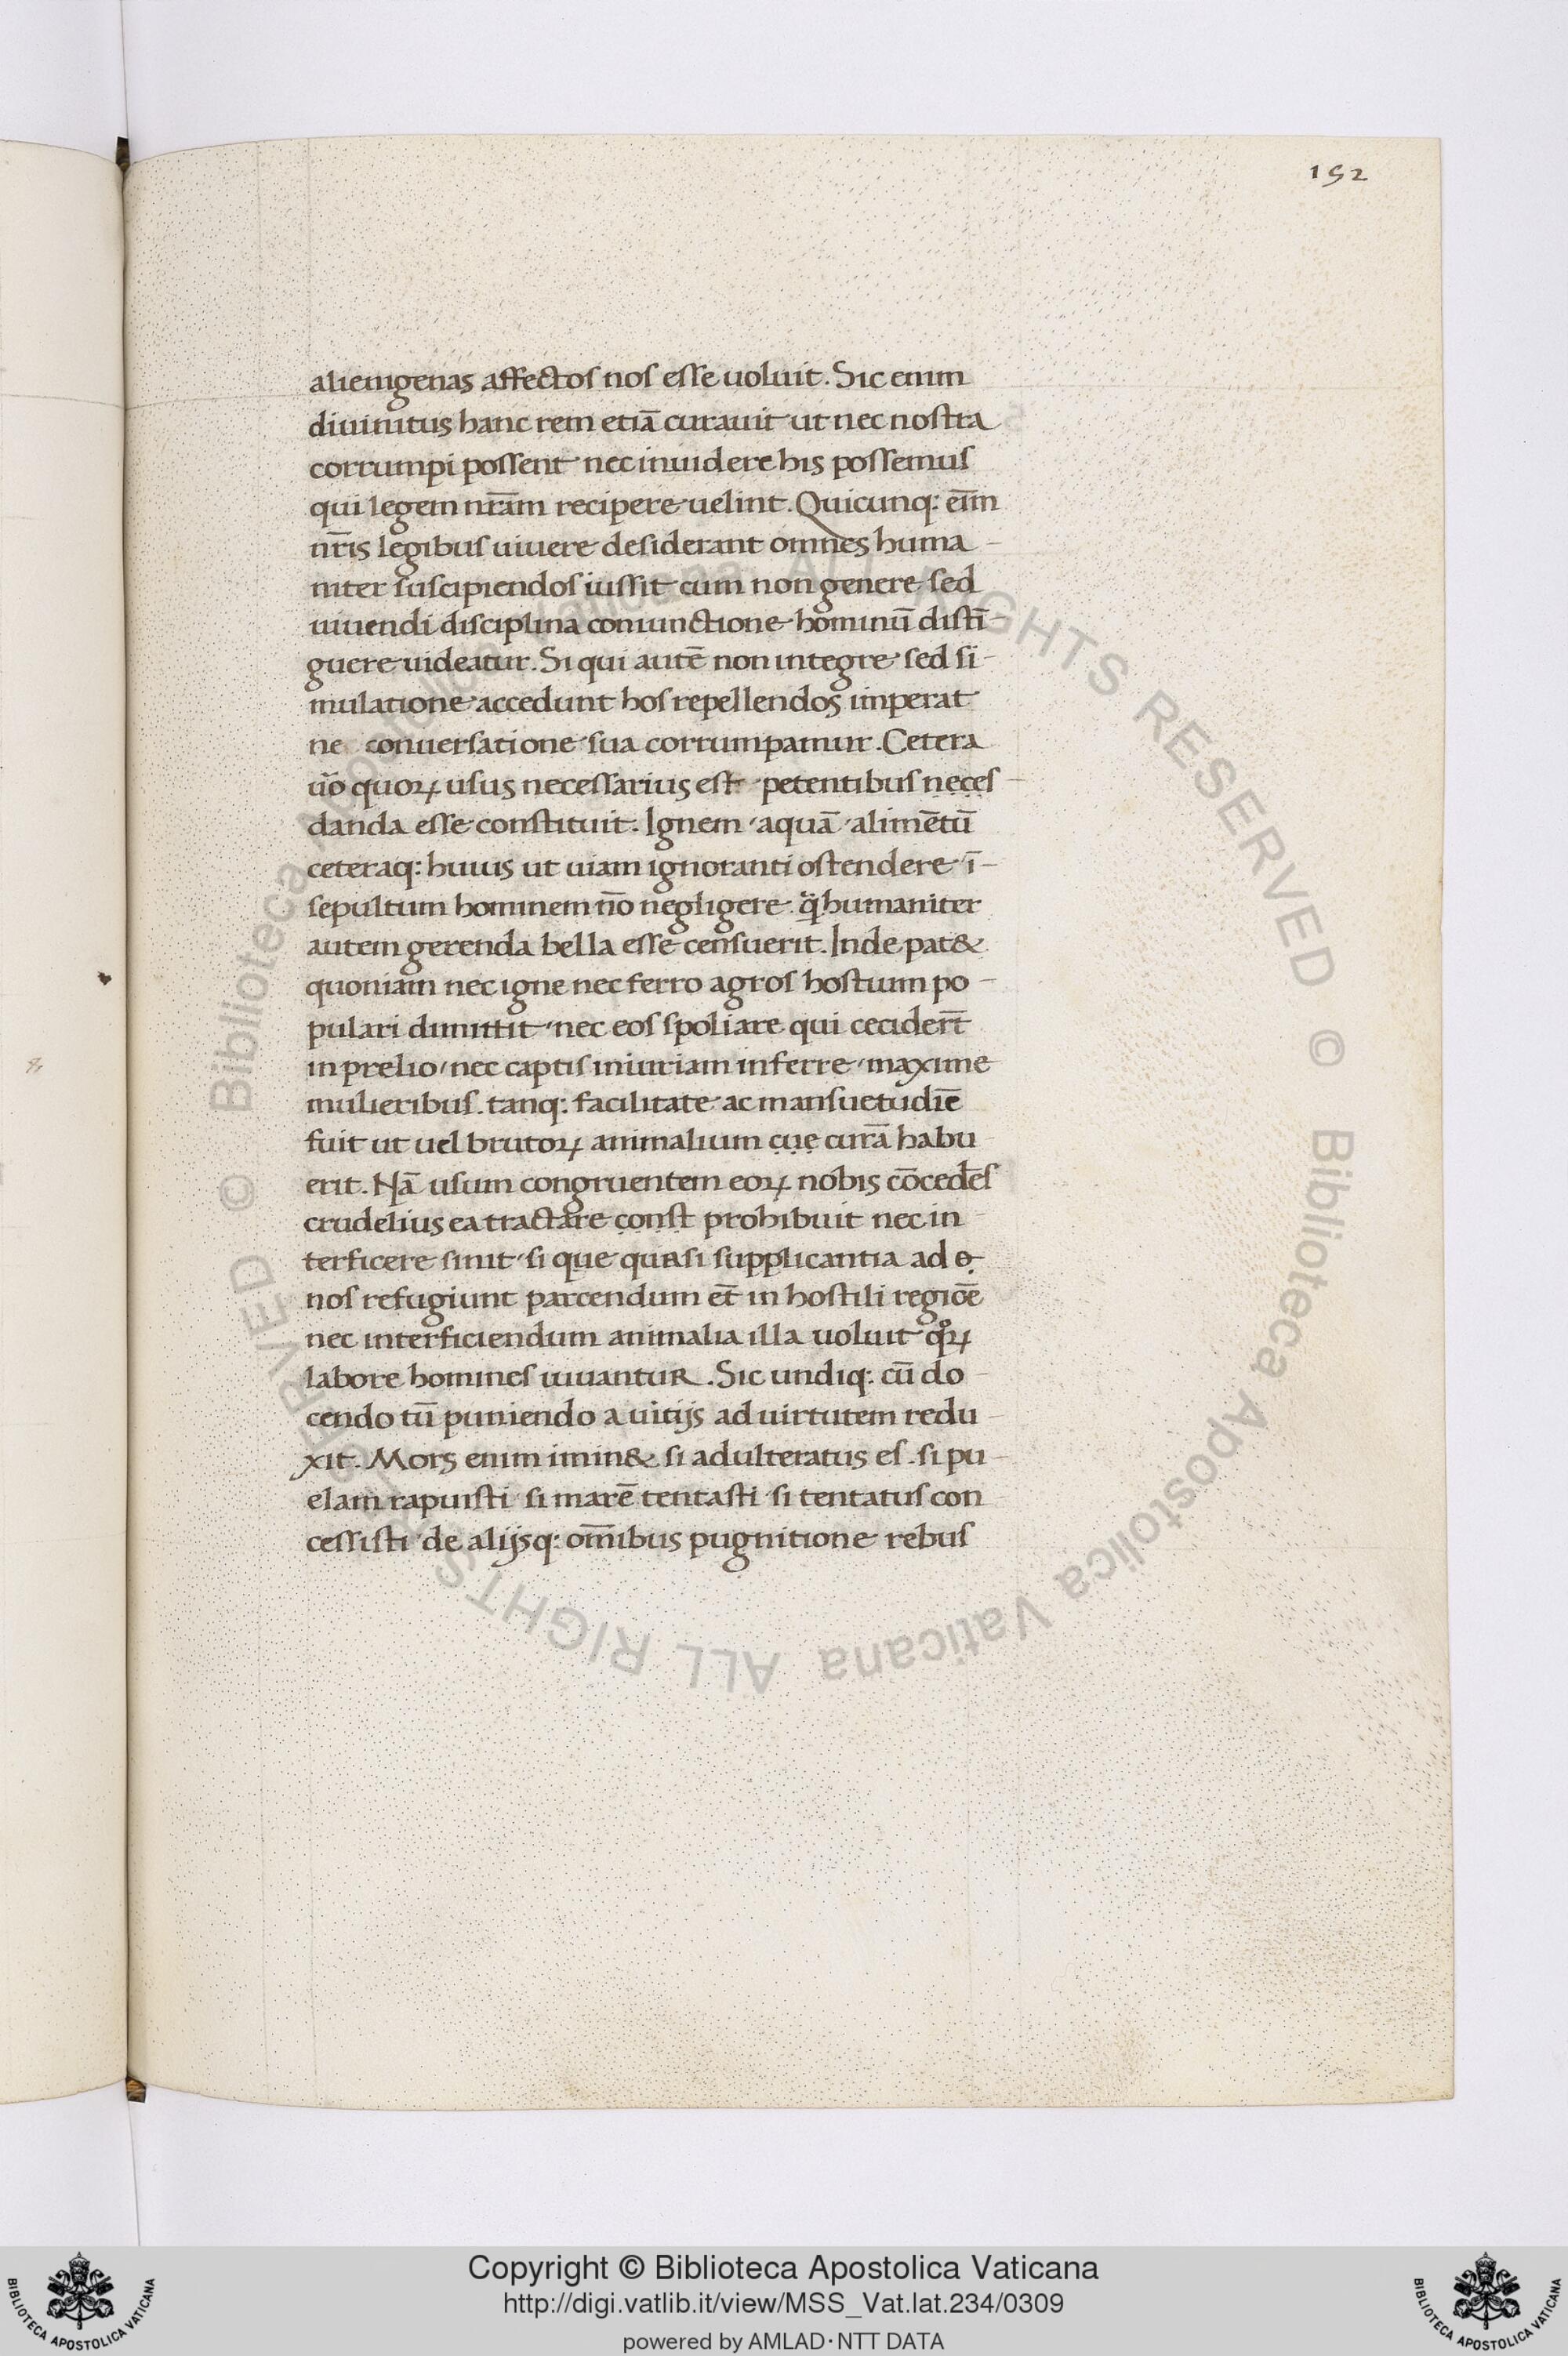 152
alienigenas affectos nos esse uoluit. Sic enim
diuinitus hanc rem etiā curauit ut nec nostra
corrumpi possent nec inuidere his possemus
qui legem nr̄am recipere uelint. Quicunq: eīm
nr̄is legibus uiuere desiderant omnes huma-
niter suscipiendos iussit cum non genere sed
uiuendi disciplina coniunctione hominū distī-
guere uideatur. Si qui autē non integre sed si-
mulatione accedunt hos repellendos imperat
ne conuersatione sua corrumpamur. Cetera
ūo quoꝝ usus necessarius est petentibus neces-
danda esse constituit. Ignem aquā alimētū
ceteraq: huius ut uiam ignoranti ostendere ī-
sepultum hominem nō negligere humaniter
autem gerenda bella esse censuerit. Inde pat&
quoniam nec igne nec ferro agros hostium po-
pulari dimittit nec eos spoliare qui cecidert̄
in prelio nec captis iniuriam inferre maxime
mulieribus. tanq: facilitate ac mansuetudīe
fuit ut uel brutoꝝ animalium cuę curā habu-
erit. Nā usum congruentem eoꝝ nobis cōcedēs
crudelius ea tractare const prohibuit nec in-
terficere sinit si que quasi supplicantia ad
nos refugiunt parcendum et̄ in hostili regiōe
nec interficiendum animalia illa uoluit qͦꝝ
labore homines iuuantur. Sic undiq: cū do-
cendo tū puniendo a uitijs ad uirtutem redu-
xit. Mors enim imin& si adulteratus es. si pu-
elam rapuisti si marē tentasti si tentatus con-
cessisti de alijsq: om̄ibus pugnitione rebus
© Biblioteca Apostolica Vaticana ALL RIGHTS RESERVED © Biblioteca Apostolica Vaticana ALL RIGHTS RESERVED
Copyright © Biblioteca Apostolica Vaticana
http://digi.vatlib.it/view/MSS_Vat.lat.234/0309
powered by AMLAD·NTT DATA
BIBLIOTECA APOSTOLICA VATICANA
BIBLIOTECA APOSTOLICA VATICANA